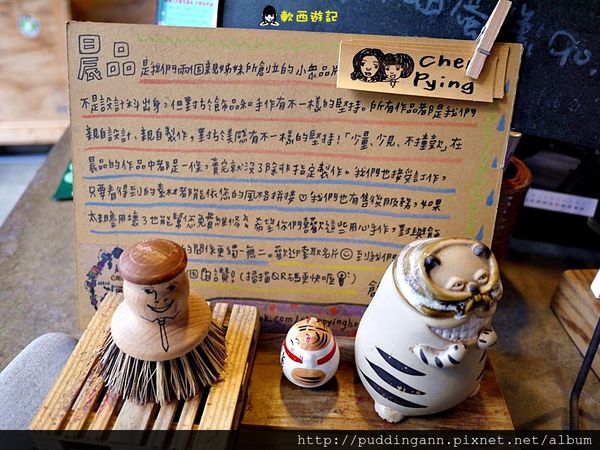 軟西遊記
晨品 是我們兩個親姊妹所創立的小飾品
Chen Pying
不是設計科出身，但對於飾品和手作有不一樣的堅持。所有作品都是我們
親自設計、親自製作，對於美感有不一樣的堅持！「少量、少見、不撞款」在
晨品的作品中都是一條，賣完就沒了除非指定製作。我們也接受訂作，
只要看得到的素材都能依您的風格拼接♡我們也有售後服務，如果
太粗魯用壞了也能幫您免費維修 希望你們喜歡這些用心手作，對與飾
的關係更獨一無二。歡迎索取名片☺到我們
個讚！(掃描QR碼更快喔
http://puddingann.pixnet.net/album